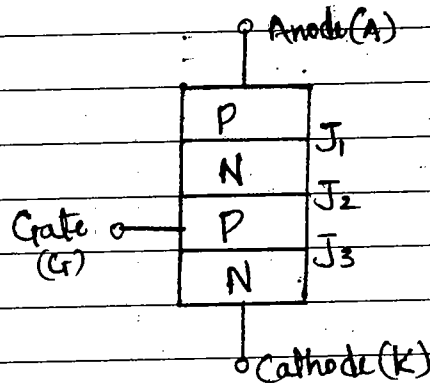 Anode(A)
P
J1
N
J2
Gate
(G)
P
J3
N
Cathode(K)